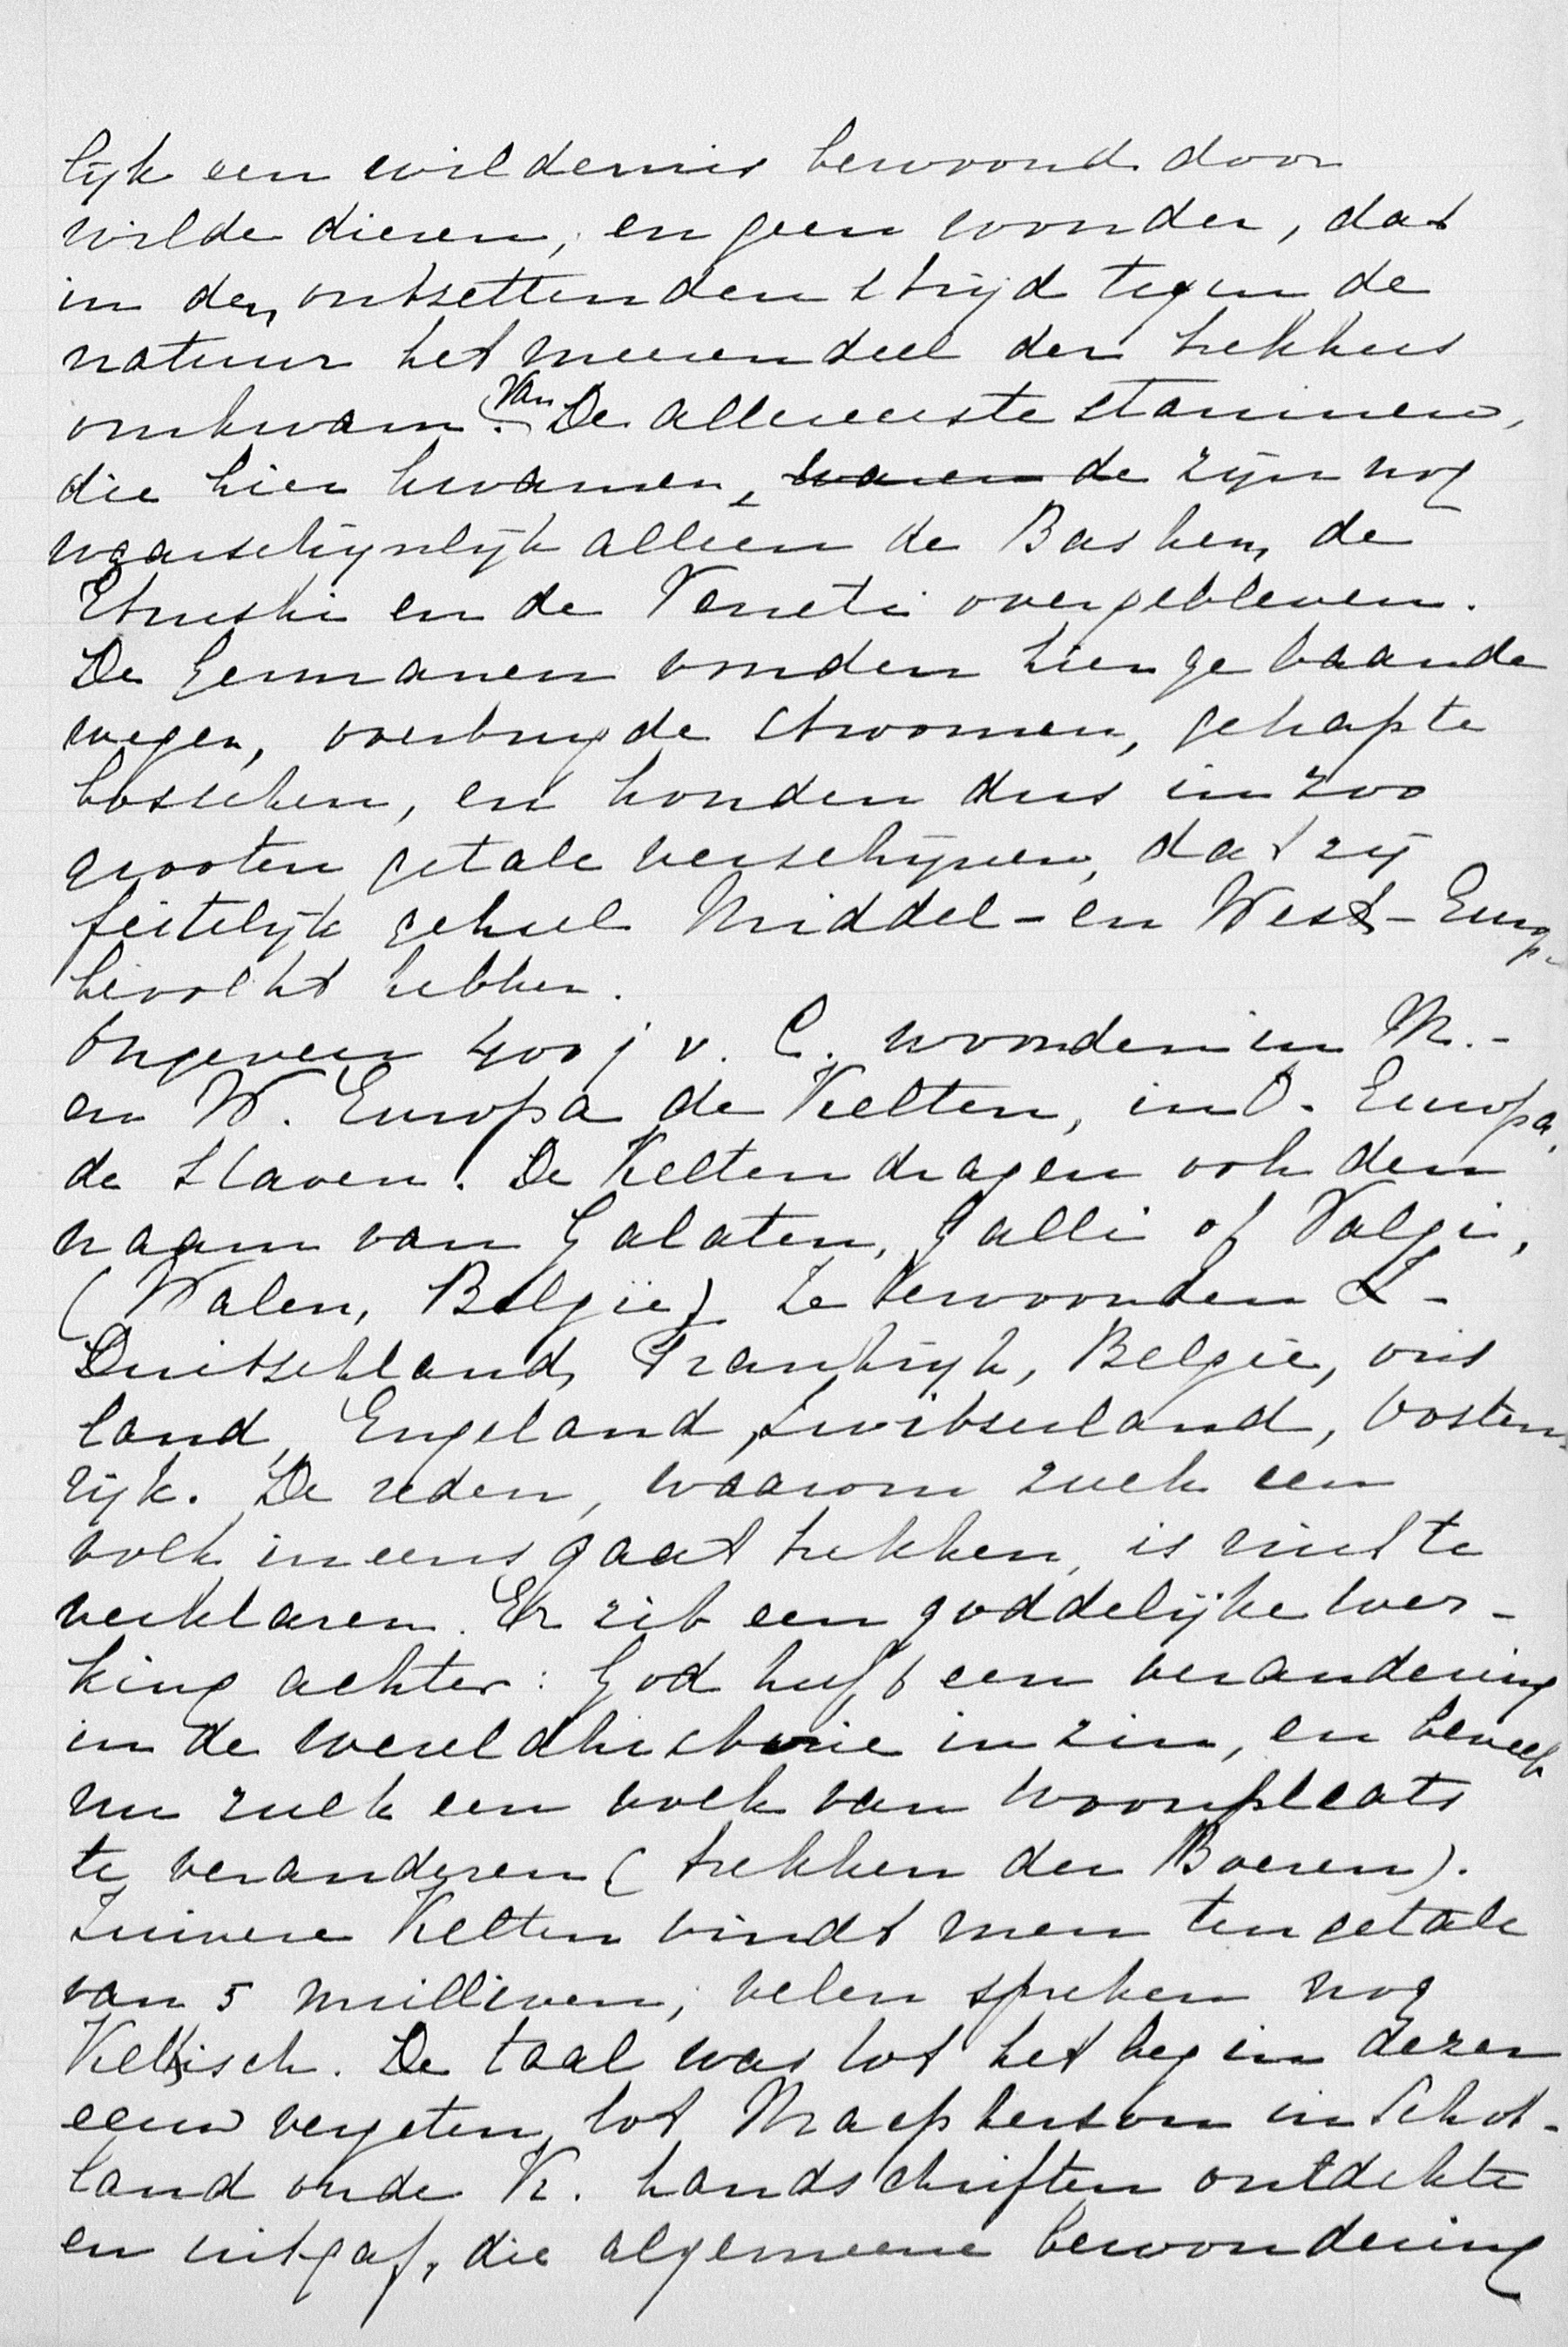 lijk een wildernis bewoond door
wilde dieren, en geen wonder, dat
in den ontzettenden strijd tegen de
natuur het meerendeel der trekkers
omkwam. Van De allereerste stammen,
die hier kwamen, waren de zijn nog
waarschijnlijk alleen de Basken, de
Etruski en de Veneti overgebleven.
De Germanen vonden hier gebaande
wegen, overbrugde stroomen, gekapte
bosschen, en konden dus in zoo
grooten getale verschijnen, dat zij
feitelijk geheel Middel- en West-Europ.
bevolkt hebben.
Ongeveer 400 j v. C. woonden in M.-
en W. Europa de Kelten, in O. Europa,
de Slaven. De Kelten dragen ook den
naam van Galaten, Galli of Valgi,
(Walen, België). Ze bewoonden Z-
Duitschland, Frankrijk, België, ons
land, Engeland, Zwitserland, Oosten
rijk. De reden, waarom zulk een
volk ineens gaat trekken, is niet te
verklaren. Er zit een goddelijke wer-
king achter: God heeft een verandering
in de wereldhistorie in zin, en beweegt
nu zulk een volk van woonplaats
te veranderen (trekken der Boeren).
Zuivere Kelten vindt men ten getale
van 5 millioen; velen spreken nog
Keltisch. De taal was tot het begin dezer
eeuw vergeten, tot Macpherson in Schot-
land oude K. handschriften ontdekte
en uitgaf, die algemeene bewondering